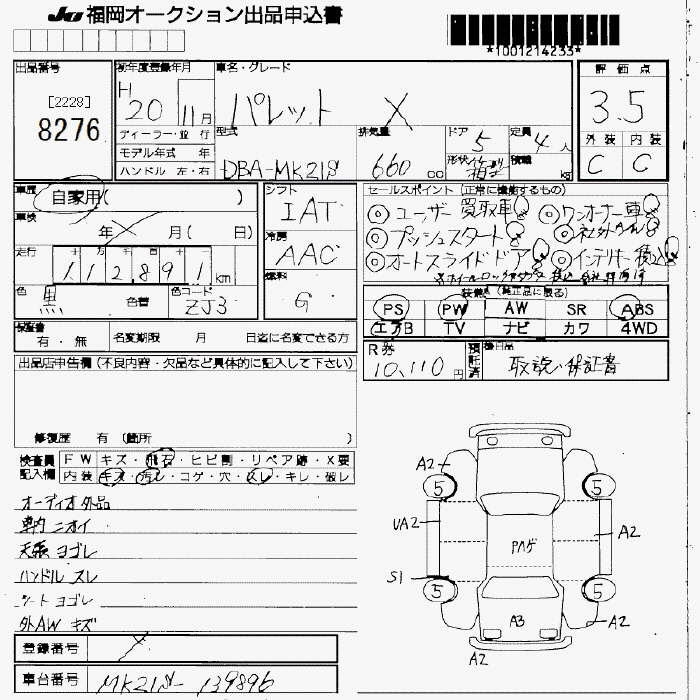 JU 福岡オークション出品申込書
*1001214233*
出品番号
[2228]
8276
初年度登録年月
H 20 11月
ディーラー・並行
モデル年式 年
ハンドル 左・右
車名・グレード
パレット X
型式
DBA-MK21S
排気量
660 cc
ドア 5
形状 箱型
定員 4人
積載 kg
評価点
3.5
外装 内装
C C
車歴 自家用( )
車検 年 X 月( 日)
走行 十万千百十
112891 km
色 黒 色替
色コード ZJ3
シフト
IAT
冷房
AAC
燃料
G
セールスポイント (正常に機能するもの)
◎ユーザー買取車 ◎ワンオーナー車
◎プッシュスタート
◎オートスライドドア ◎インテリキー
装備品 (純正品に限る)
PS PW AW SR ABS
エアB TV ナビ カワ 4WD
保証書 有・無
名変期限 月 日迄に名変できる方
R券 10,110円
預託済
後日品
取説・保証書
出品店申告欄(不良内容・欠品など具体的に記入して下さい)
修復歴 有 (箇所 )
検査員記入欄
FW キズ・飛石・ヒビ割・リペア跡・X要
内装 キズ・汚レ・コゲ・穴・スレ・キレ・破レ
オーディオ外品
車内ニオイ
天張ヨゴレ
ハンドル スレ
シートヨゴレ
外AW キズ
登録番号
車台番号 MK21S-139896
A2
5 5
UA2 A2
Pハゲ
S1
5 5
A3 A2
A2